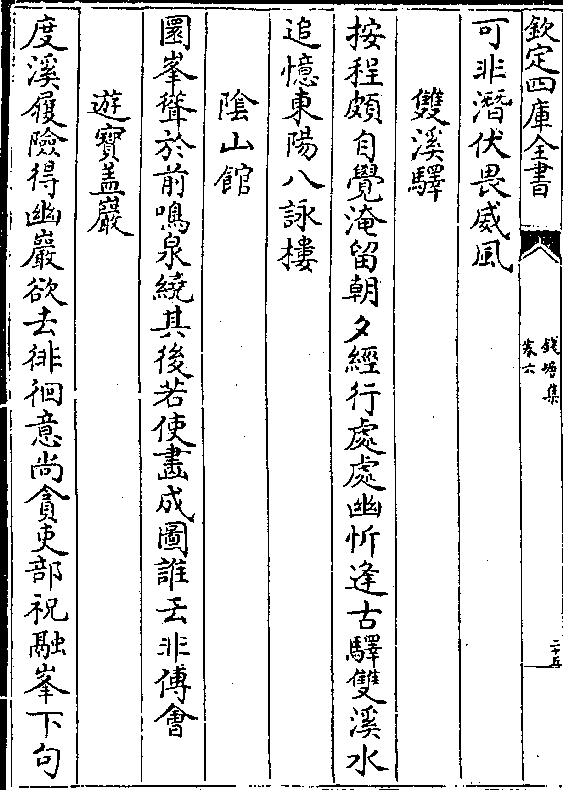 欽定四庫全書
錢塘集
卷六
二十五
可非潛伏畏威風
雙溪驛
按程頗自覺淹留朝夕經行處處幽忻逢古驛雙溪水
追憶東陽八詠樓
陰山館
圜峯聳於前鳴泉繞其後若使畫成圖誰云非傅會
遊寶盖巖
度溪履險得幽巖欲去徘徊意尚貪吏部祝融峯下句